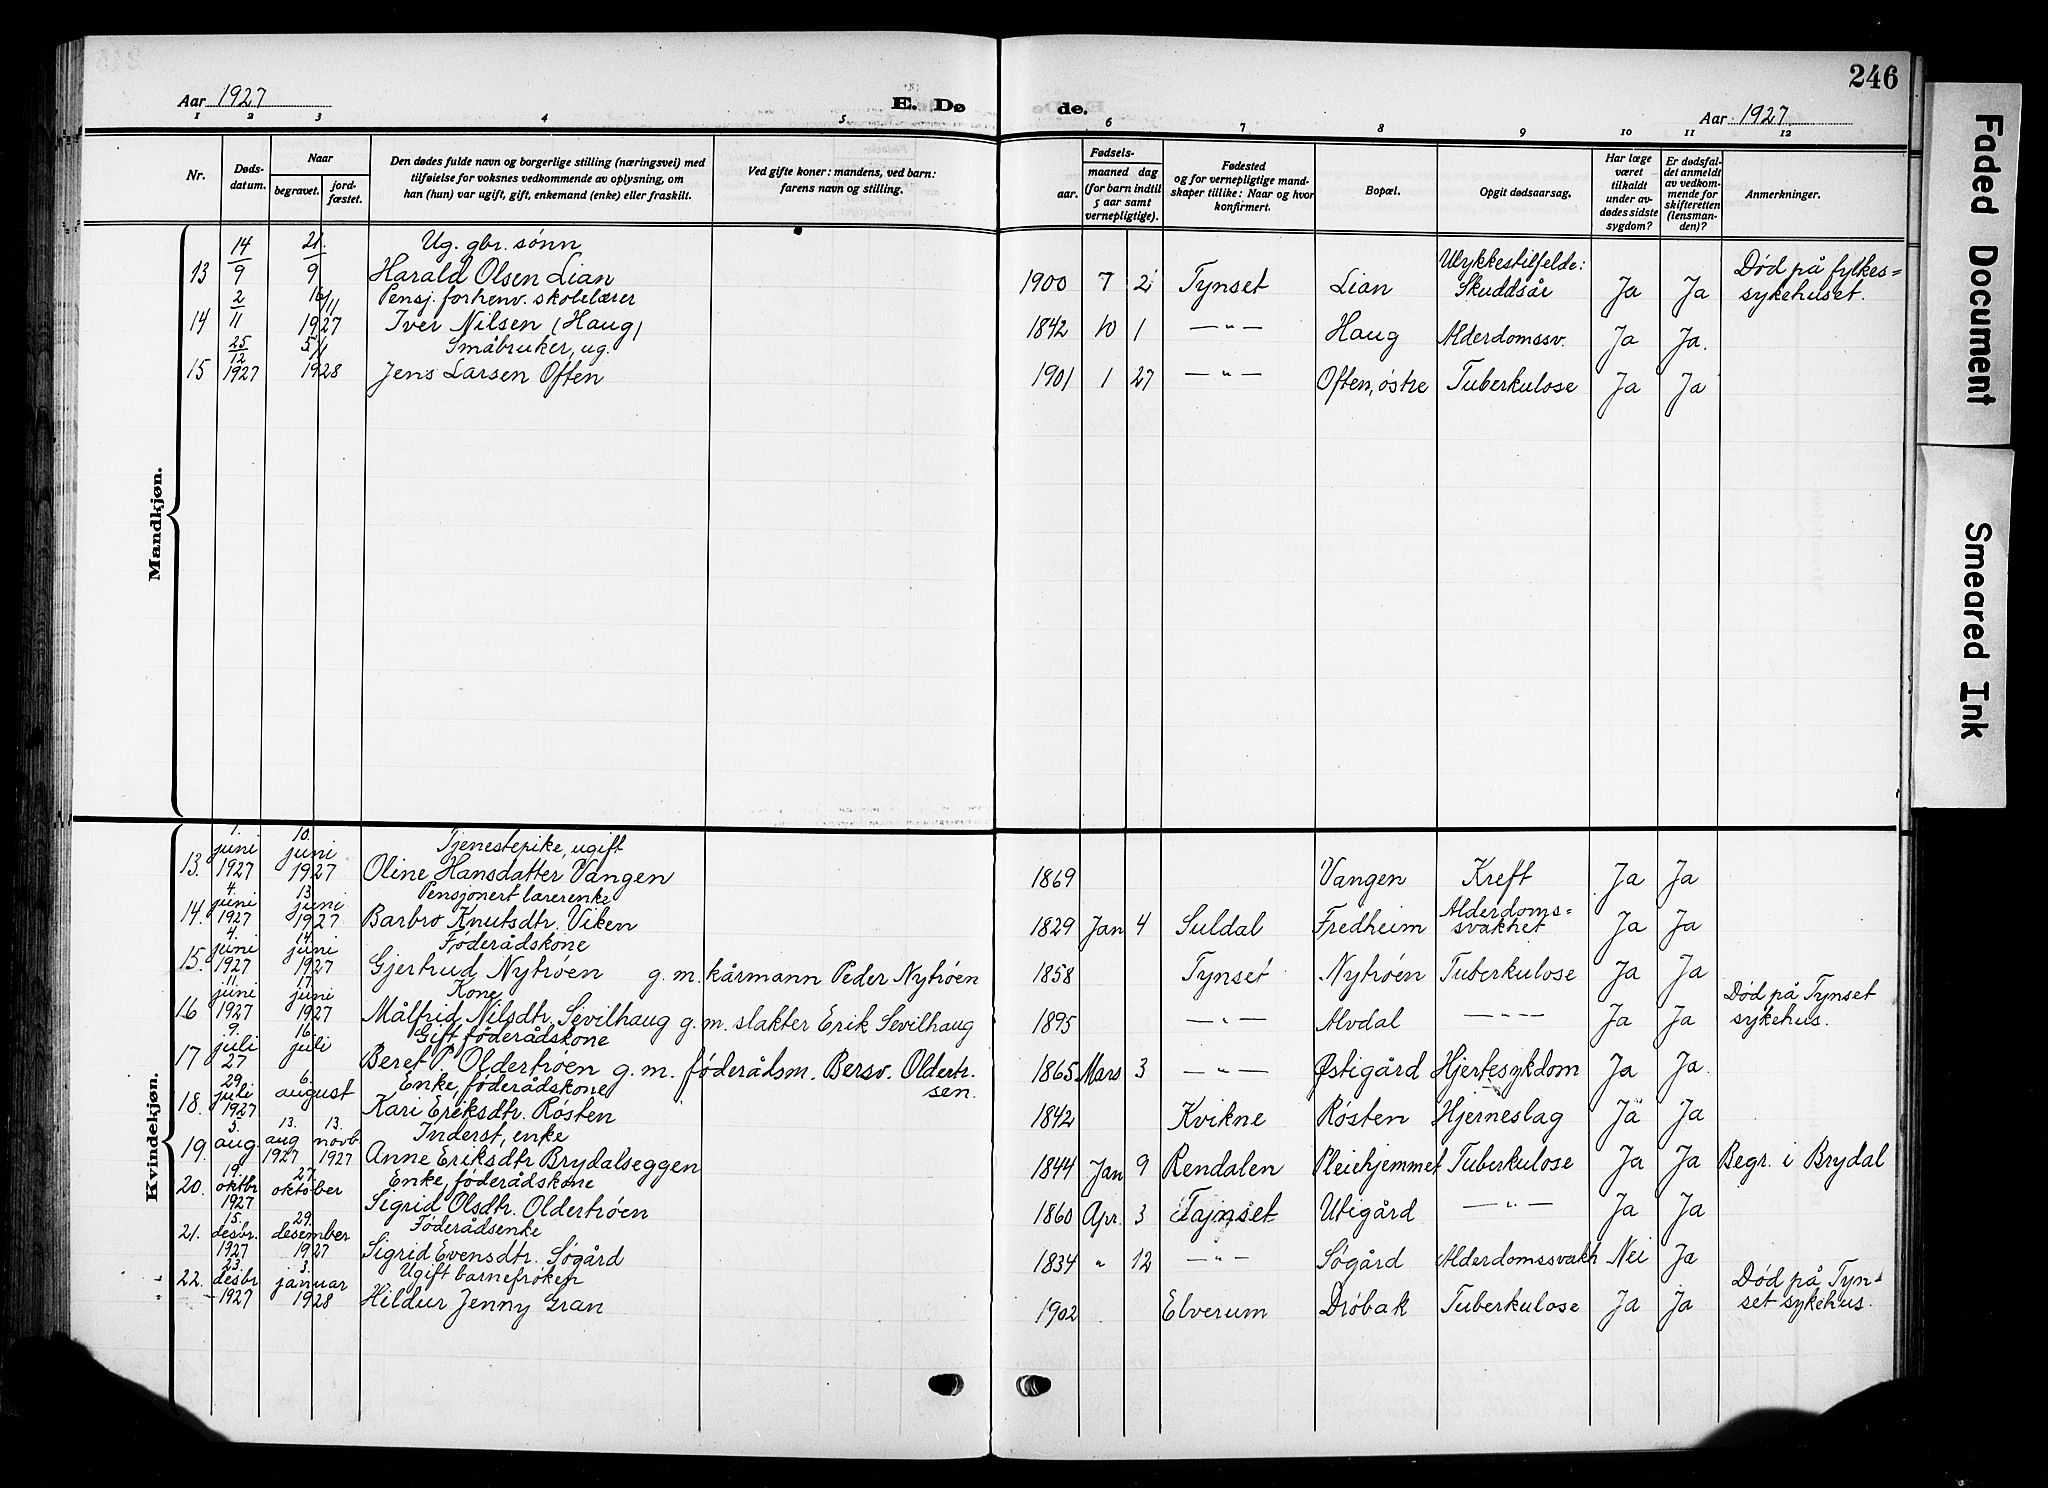 246
Aar 1927 E. Dø de. Aar 1927
1 2 3 4 5 6 7 8 9 10 11 12
Nr.
Døds-
datum.
Naar
begravet.
jord-
fæstet.
Den dødes fulde navn og borgerlige stilling (næringsvei) med
tilføielse for voksnes vedkommende av oplysning, om
han (hun) var ugift, gift, enkemand (enke) eller fraskilt.
Ved gifte koner: mandens, ved barn:
farens navn og stilling.
Fødsels-
aar.
maaned dag
(for barn indtil
5 aar samt
vernepligtige).
Fødested
og for vernepligtige mand-
skaper tillike: Naar og hvor
konfirmert.
Bopæl.
Opgit dødsaarsag.
Har læge
været
tilkaldt
under av-
dødes sidste
sygdom?
Er dødsfal-
det anmeldt
av vedkom-
mende for
skifteretten
(lensman-
den)?
Anmerkninger.
Mandkjøn.
14/9 21./9 Ug. gbr. sønn Ulykkestilfelde: Død på fylkes=
13 Harald Olsen Lian 1900 7 2 Tynset Lian Skuddsår Ja Ja sykehuset.
2/11 16/11 Pensj. forhenv. skolelærer
14 1927 Iver Nilsen (Haug) 1842 10 1 — " — Haug Alderdomssv. Ja Ja.
25/12 5/1 Småbruker, ug.
15 1927 1928 Jens Larsen Often 1901 1 27 — " — Often, østre Tuberkulose Ja Ja
Kvindekjøn.
1. juni 10. juni Tjenestepike, ugift
13. 1927 1927 Oline Hansdatter Vangen 1869 Vangen Kreft Ja Ja
4. juni 13. juni Pensjonert lærerenke Alderdoms=
14. 1927 1927 Barbro Knutsdtr. Viken 1829 Jan 4 Suldal Fredheim svakhet Ja Ja
4. juni 14. juni Føderådskone
15. 1927 1927 Gjertrud Nytrøen g. m. kårmann Peder Nytrøen 1858 Tynset Nytrøen Tuberkulose Ja Ja
11. juni 17. juni Kone Død på Tynset
16 1927 1927 Målfrid Nilsdtr. Sevilhaug g. m. slakter Erik Sevilhaug 1895 — " — Alvdal — " — Ja Ja sykehus.
9. juli 16. juli Gift, føderådskone
17 27 Beret P. Oldertrøen g. m. føderådsm. Bersv. Oldertr. 1865 Mars 3 — " — Østigård Hjertesykdom Ja Ja.
sen.
29. juli 6. august Enke, føderådskone
18. 1927 Kari Eriksdtr. Røsten 1842 Kvikne Røsten Hjerneslag Ja Ja
5. 13. 13. Inderst, enke
19. aug. aug 1927 novb 1927 Anne Eriksdtr Brydalseggen 1844 Jan 9 Rendalen Pleiehjemmet Tuberkulose Ja Ja Begr. i Brydal
19. 27. Enke, føderådskone
20. oktbr 1927 oktober Sigrid Olsdtr. Oldertrøen 1860 Apr. 3 Tajnset Utigård — " — Ja Ja
5. 29. Føderådsenke
21. desbr. 1927 desember 1927 Sigrid Evensdtr. Søgård 1834 " 12 — " — Søgård Alderdomssvakh Nei Ja
23. 3. Ugift barnefrøken Død på Tyn=
22. desbr 1927 januar 1928 Hildur Jenny Gran 1902 Elverum Drøbak Tuberkulose Ja Ja set sykehus.
Faded Document
Smeared Ink